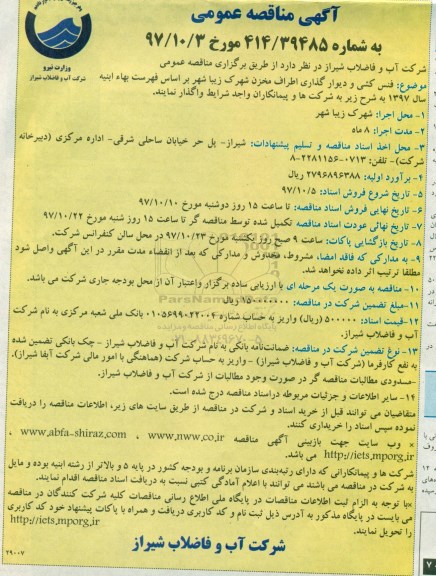 آگهی مناقصه عمومی
به شماره ۴۱۴/۳۹۴۸۵ مورخ ۹۷/۱۰/۳
وزارت نیرو
شرکت آب و فاضلاب شیراز
شرکت آب و فاضلاب شیراز در نظر دارد از طریق برگزاری مناقصه عمومی
موضوع: فنس کشی و دیوار گذاری اطراف مخزن شهرک زیبا شهر بر اساس فهرست بهاء ابنیه
سال ۱۳۹۷ به شرح زیر به شرکت ها و پیمانکاران واجد شرایط واگذار نمایند.
۱- محل اجرا: شهرک زیبا شهر
۲- مدت اجرا: ۸ ماه
۳- محل اخذ اسناد مناقصه و تسلیم پیشنهادات: شیراز- پل حر خیابان ساحلی شرقی- اداره مرکزی (دبیرخانه
شرکت)- تلفن: ۰۷۱۳-۲۲۸۱۱۵۶-۸
۴- برآورد اولیه: ۲۷۹۶۸۹۶۳۸۸ ریال
۵- تاریخ شروع فروش اسناد: ۹۷/۱۰/۵
۶- تاریخ نهایی فروش اسناد مناقصه: تا ساعت ۱۵ روز دوشنبه مورخ ۹۷/۱۰/۱۰
۷- تاریخ نهائی عودت اسناد مناقصه تکمیل شده توسط مناقصه گر تا ساعت ۱۵ روز شنبه مورخ ۹۷/۱۰/۲۲
۸- تاریخ بازگشایی پاکات: ساعت ۹ صبح روز یکشنبه مورخ ۹۷/۱۰/۲۳ در محل سالن کنفرانس شرکت.
۹- به مدارکی که فاقد امضا، مشروط، مخدوش و مدارکی که بعد از انقضاء مدت مقرر در این آگهی واصل شود
مطلقا ترتیب اثر داده نخواهد شد.
۱۰- مناقصه به صورت یک مرحله ای با ارزیابی ساده برگزار واعتبار آن از محل بودجه جاری شرکت می باشد.
۱۱- مبلغ تضمین شرکت در مناقصه: ۱۵۰۰۰۰۰۰۰ ریال
۱۲- قیمت اسناد: ۵۰۰۰۰۰ (ریال) واریز به حساب شماره ۰۱۰۵۶۹۹۰۲۲۰۰۴ بانک ملی شعبه مرکزی به نام شرکت
آب و فاضلاب شیراز.
۱۳- نوع تضمین شرکت در مناقصه: ضمانتنامه بانکی به نام شرکت آب و فاضلاب شیراز - چک بانکی تضمین شده
به نفع کارفرما (شرکت آب و فاضلاب شیراز) - واریز به حساب شرکت (هماهنگی با امور مالی شرکت آبفا شیراز).
-مسدودی مطالبات مناقصه گر در صورت وجود مطالبات از شرکت آب و فاضلاب شیراز.
۱۴- سایر اطلاعات و جزئیات مربوطه دراسناد مناقصه درج شده است.
متقاضیان می توانند قبل از خرید اسناد و شرکت در مناقصه از طریق سایت های زیر، اطلاعات مناقصه را دریافت
نموده سپس اسناد را خریداری کنند.
× وب سایت جهت بازبینی آگهی مناقصه www.abfa-shiraz.com ، www.nww.co.ir ،
http://iets.mporg.ir می باشد.
شرکت ها و پیمانکارانی که دارای رتبه‌بندی سازمان برنامه و بودجه کشور در پایه ۵ و بالاتر از رشته ابنیه بوده و مایل
به شرکت در مناقصه می باشند می توانند با اعلام آمادگی کتبی نسبت به دریافت اسناد مناقصه اقدام نمایند.
×با توجه به الزام ثبت اطلاعات مناقصات در پایگاه ملی اطلاع رسانی مناقصات کلیه شرکت کنندگان در مناقصه
می بایست در پایگاه مذکور به آدرس ذیل ثبت نام و کد کاربری دریافت و همراه با پاکات پیشنهاد خود کد کاربری
را تحویل نمایند. http://iets.mporg.ir
شرکت آب و فاضلاب شیراز
۲۹۰۰۷